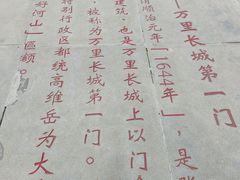 万里长城第一门
清顺治元年(1644年),是
建筑,也是万里长城上以门
,被称为万里长城第一门。
特别行政区都统高维岳为大
好河山”匾额。